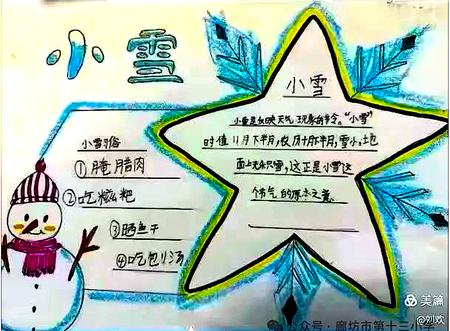 小雪
小雪习俗
①腌腊肉
②吃糍粑
③晒鱼干
④吃刨汤
小雪
小雪是反映天气现象的节令。“小雪”
时值11月下半月,农历十月下半月,雪小,地
面上无积雪,这正是小雪这
个节气的原本之意。
美篇
@刘欢
公众号·廊坊市第十三小学